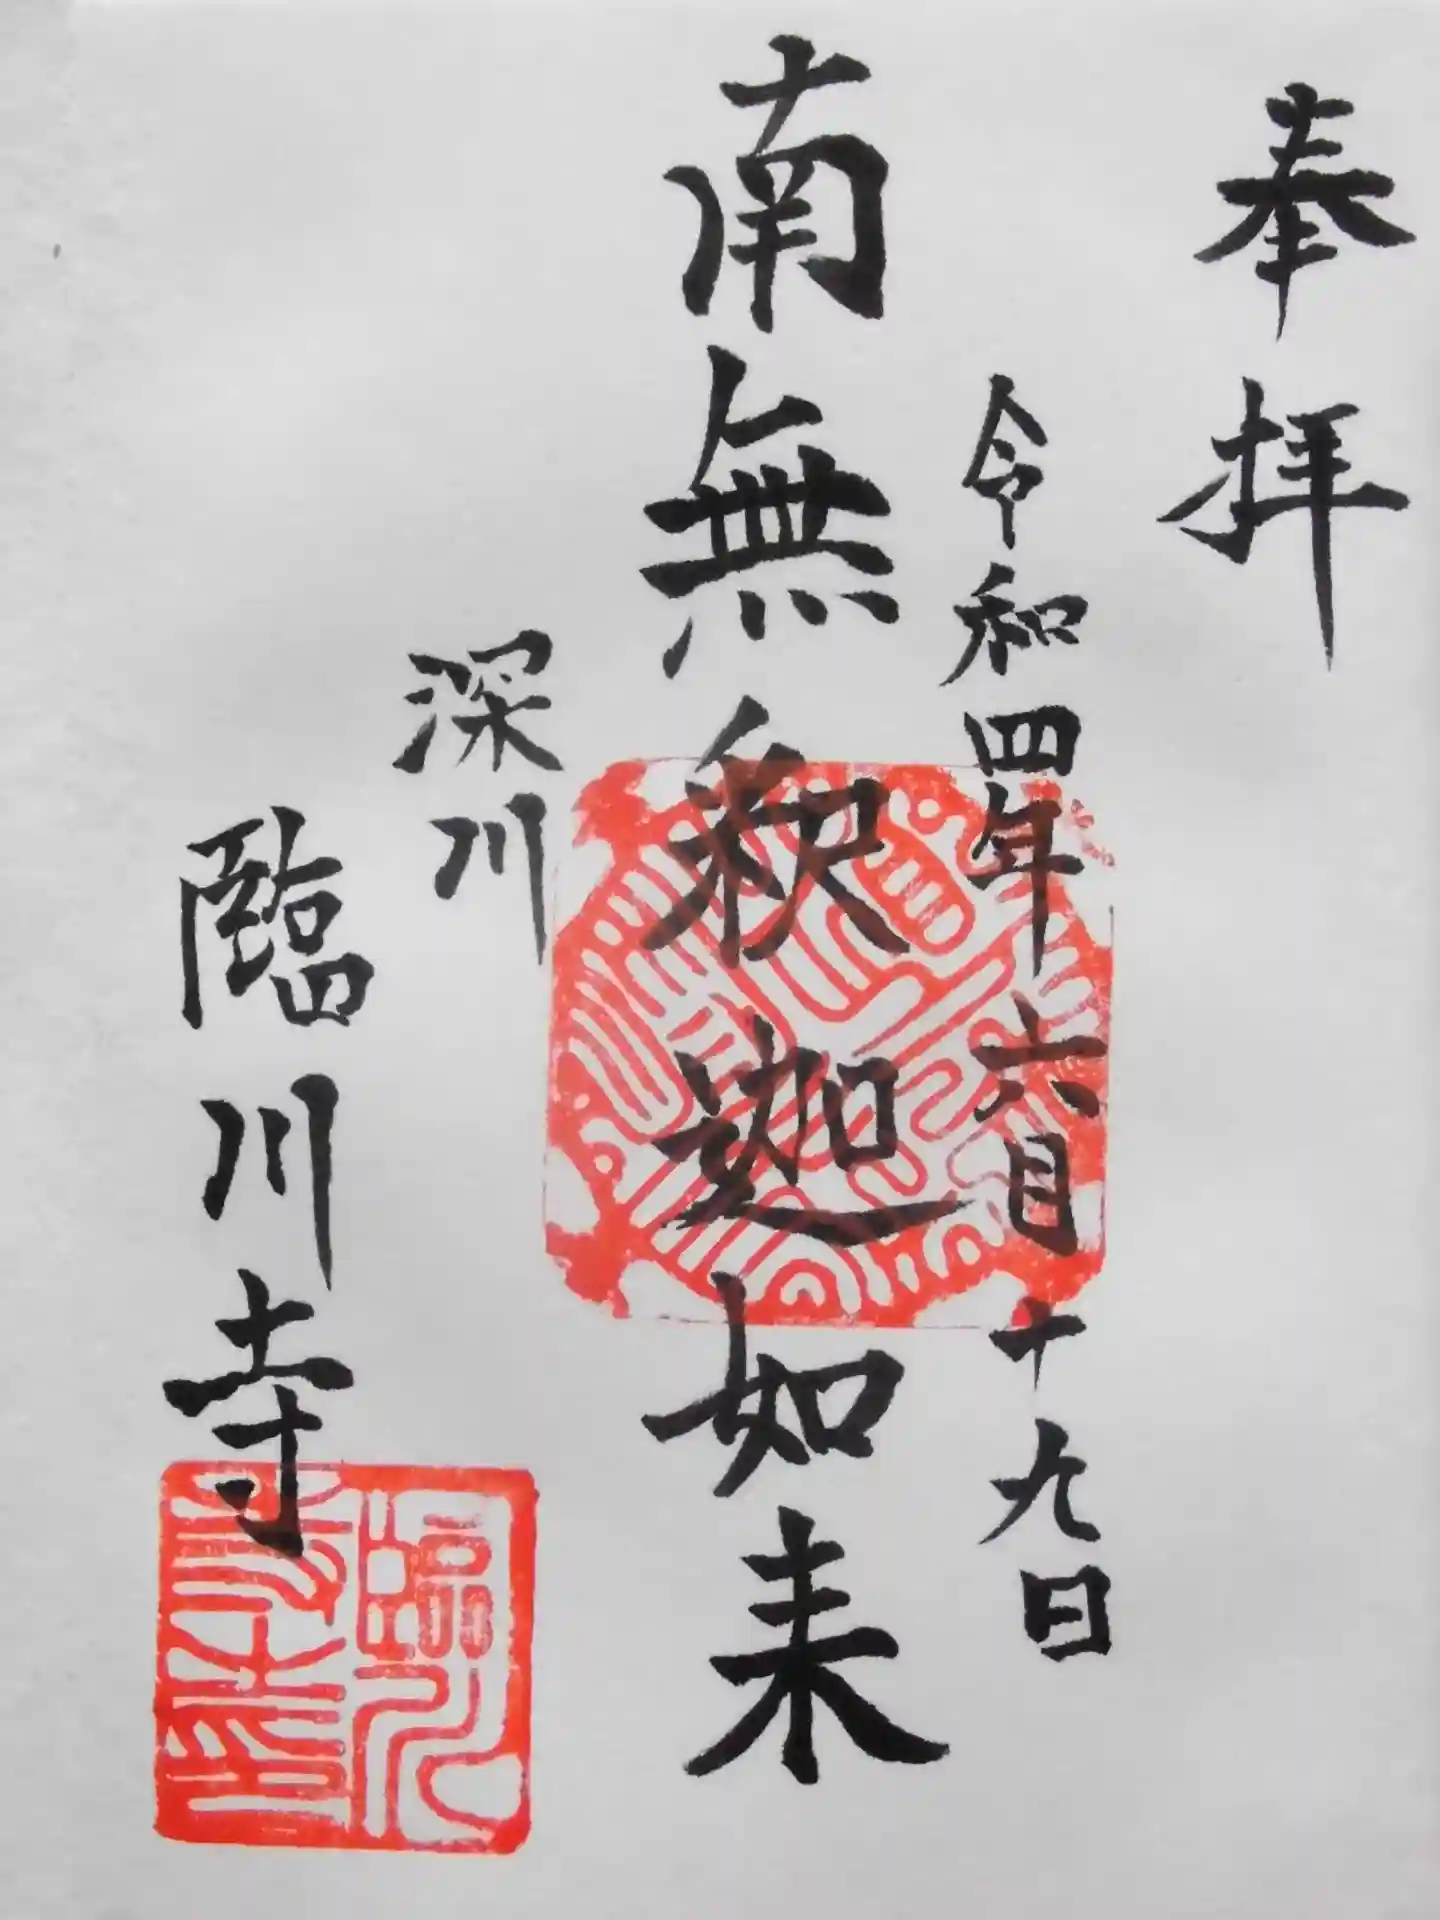 奉拝
令和四年六月十九日
南無釈迦如来
深川
臨川寺
臨川寺印